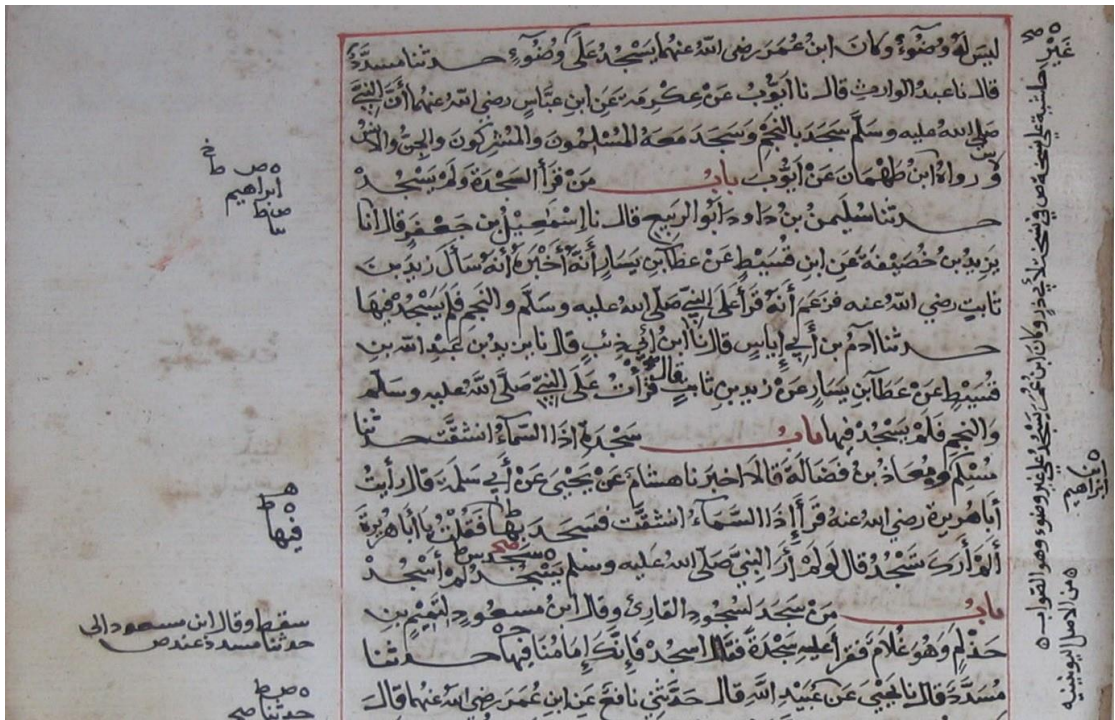 ليس له وضوء وكان ابن عمر رضى الله عنهما يسجد على وضوء حدثنا مسدد
قال نا عبد الوارث قال نا ايوب عن عكرمة عن ابن عباس رضي الله عنهما أن النبي
صلى الله عليه وسلم سجد بالنجم وسجد معه المسلمون والمشركون والجن والانس
ورواه ابن طهمان عن ايوب باب من قرأ السجدة ولم يسجد
حدثنا سليمن بن داود ابو الربيع قال نا اسمعيل بن جعفر قال انا
يزيد بن خصيفة عن ابن قسيط عن عطا بن يسار أنه أخبره أنه سأل زيد بن
ثابت رضي الله عنه فزعم أنه قرأ على النبي صلى الله عليه وسلم والنجم فلم يسجد فيها
حدثنا ادم بن أبي إياس قال نا ابن أبي ذئب قال نا يزيد بن عبد الله بن
قسيط عن عطاء بن يسار عن زيد بن ثابت قال قرأت على النبي صلى الله عليه وسلم
والنجم فلم يسجد فيها باب سجدة اذا السماء انشقت حدثنا
مسلم ومعاذ بن فضالة قالا اخبرنا هشام عن يحيى عن أبي سلمة قال رأيت
أبا هريرة رضي الله عنه قرأ إذا السماء انشقت فسجد بها فقلت يا أبا هريرة
ألم أرك تسجد قال لو لم أر النبي صلى الله عليه وسلم يسجد لم أسجد
سجد
باب من سجد لسجود القارئ وقال ابن مسعود لتميم بن
حذلم وهو غلام فقرأ عليه سجدة فقال اسجد فإنك إمامنا فيها حدثنا
مسدد قال نا يحيى عن عبيد الله قال حدثني نافع عن ابن عمر رضى الله عنهما قال
ابراهيم
فيها
سقط وقال ابن مسعود الى
حدثنا مسدد عند ص
حدثنا
غير
حاشية على نسخة ص في نسخة لأبي ذر وكان ابن عمر يسجد على غير وضوء وهو الصواب
ابراهيم
من الاصل اليونينيه